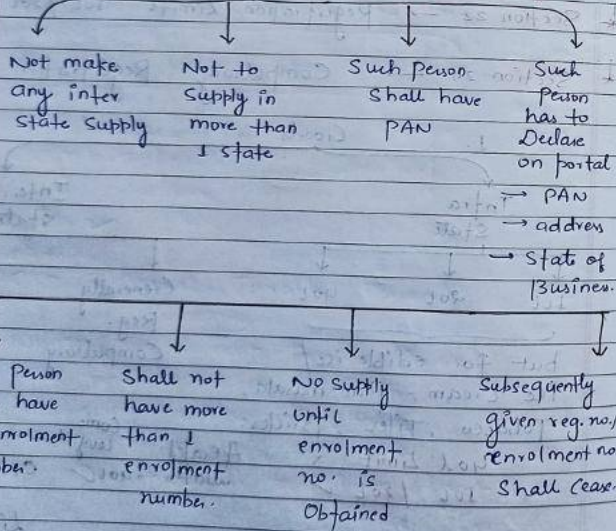 Not make
any inter
state supply
Not to
Supply in
more than
1 state
Such person
Shall have
PAN
Such
Person
has to
Declare
on portal
→ PAN
→ address
→ State of
Busines.
Person
have
nrolment
ber.
Shall not
have more
than 1
enrolment
number.
No supply
until
enrolment
no. is
Obtained
Subsequently
given reg. no.,
enrolment no
Shall Cease.